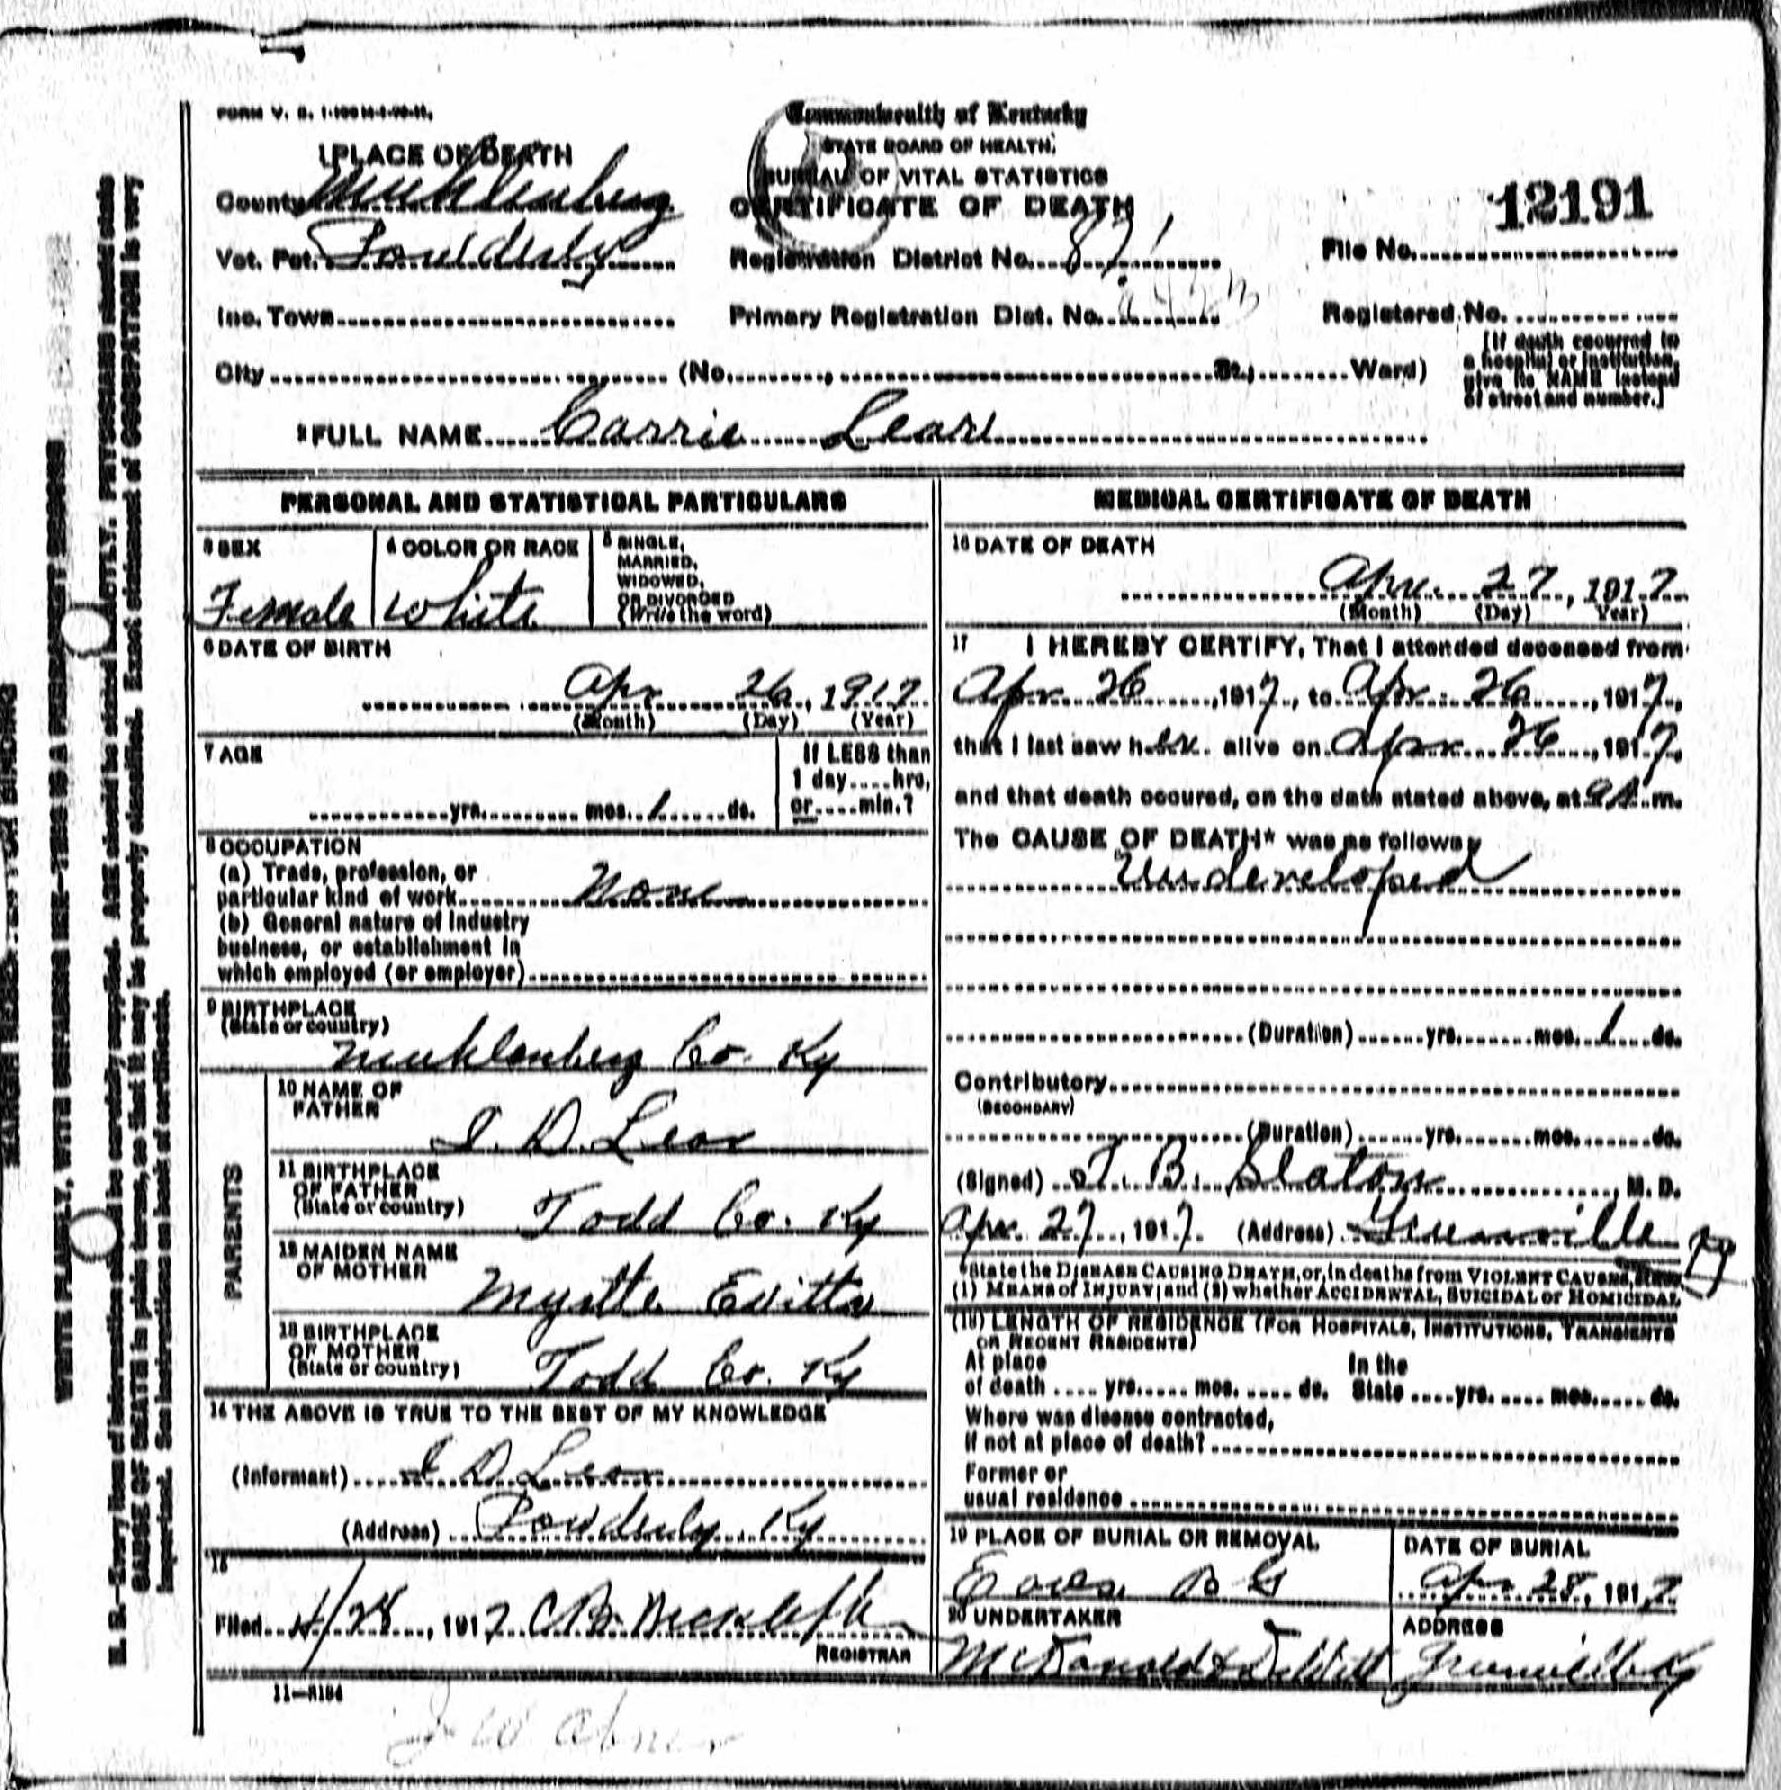 FORM V. S. 1-
Commonwealth of Kentucky
STATE BOARD OF HEALTH,
BUREAU OF VITAL STATISTICS
CERTIFICATE OF DEATH
12191
1 PLACE OF DEATH
County Muhlenberg
Vot. Pct. Powderly
Registration District No. 871
File No.
Inc. Town
Primary Registration Dist. No.
Registered No.
City (No. , St., Ward)
[If death occurred in
a hospital or institution,
give its NAME instead
of street and number.]
2 FULL NAME Carrie Lear
PERSONAL AND STATISTICAL PARTICULARS
3 SEX
Female
4 COLOR OR RACE
White
5 SINGLE,
MARRIED,
WIDOWED,
OR DIVORCED
(Write the word)
6 DATE OF BIRTH
Apr 26, 1917
(Month) (Day) (Year)
7 AGE
yrs. mos. 1 ds.
If LESS than
1 day....hrs,
or....min.?
8 OCCUPATION
(a) Trade, profession, or
particular kind of work None
(b) General nature of industry
business, or establishment in
which employed (or employer)
9 BIRTHPLACE
(State or country)
Muhlenberg Co. Ky
PARENTS
10 NAME OF
FATHER
I. D. Lear
11 BIRTHPLACE
OF FATHER
(State or country)
Todd Co. Ky
12 MAIDEN NAME
OF MOTHER
Myrtle Evitts
13 BIRTHPLACE
OF MOTHER
(State or country)
Todd Co. Ky
14 THE ABOVE IS TRUE TO THE BEST OF MY KNOWLEDGE
(Informant) I D Lear
(Address) Powderly Ky
15
Filed 4/28, 1917 C B
REGISTRAR
11-
MEDICAL CERTIFICATE OF DEATH
16 DATE OF DEATH
Apr. 27, 1917
(Month) (Day) Year)
17 I HEREBY CERTIFY, That I attended deceased from
Apr 26, 1917, to Apr. 26, 1917,
that I last saw her alive on Apr 26, 1917,
and that death occured, on the date stated above, at 9 A. m.
The CAUSE OF DEATH* was as follows
Undeveloped
(Duration) yrs. mos. 1 ds.
Contributory
(SECONDARY)
(Duration) yrs. mos. ds.
(Signed) T. B. Slaton, M. D.
Apr. 27, 1917. (Address) Greenville Ky
*State the DISEASE CAUSING DEATH, or, in deaths from VIOLENT CAUSES, State
(1) MEANS of INJURY; and (2) whether ACCIDENTAL, SUICIDAL or HOMICIDAL
(18) LENGTH OF RESIDENCE (FOR HOSPITALS, INSTITUTIONS, TRANSIENTS
OR RECENT RESIDENTS)
At place
of death .... yrs. .... mos. .... ds.
In the
State .... yrs. .... mos. .... ds.
Where was disease contracted,
if not at place of death?
Former or
usual residence
19 PLACE OF BURIAL OR REMOVAL
DATE OF BURIAL
Apr 28, 1917
20 UNDERTAKER
McDonald & DeWitt
ADDRESS
Greenville Ky
WRITE PLAINLY, WITH UNFADING INK—THIS IS A PERMANENT RECORD
N. B.—Every item of information should be carefully supplied. AGE should be stated EXACTLY. PHYSICIANS should state
CAUSE OF DEATH in plain terms, so that it may be properly classified. Exact statement of OCCUPATION is very
important. See instructions on back of certificate.